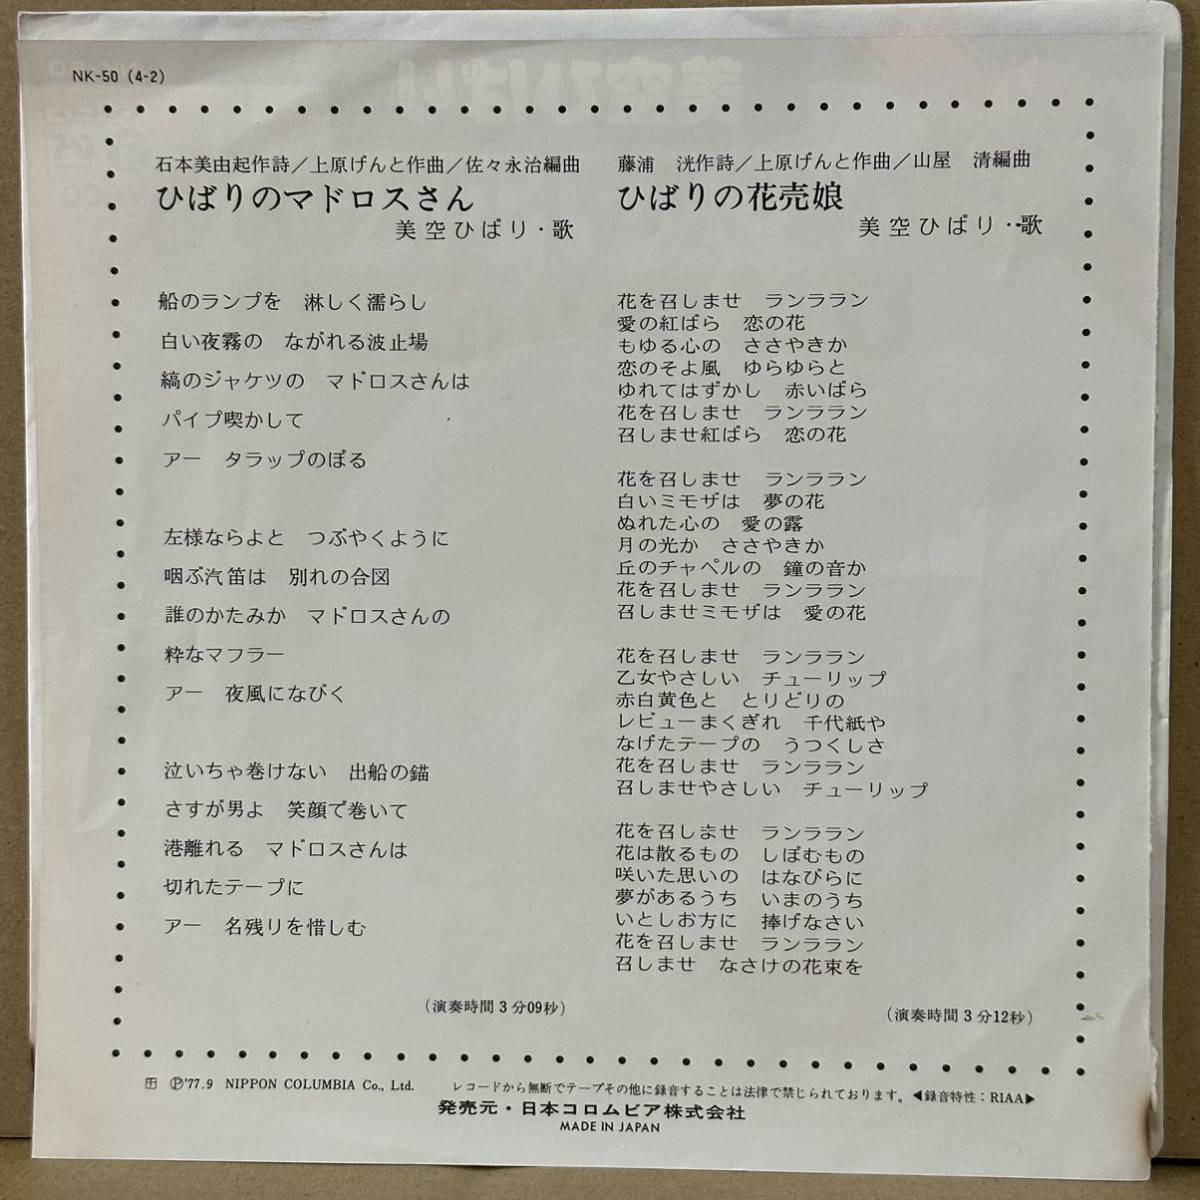 NK-50 (4-2)
石本美由起作詩/上原げんと作曲/佐々永治編曲
ひばりのマドロスさん
美空ひばり・歌
船のランプを　淋しく濡らし
白い夜霧の　ながれる波止場
縞のジャケツの　マドロスさんは
パイプ喫かして
アー　タラップのぼる
左様ならよと　つぶやくように
咽ぶ汽笛は　別れの合図
誰のかたみか　マドロスさんの
粋なマフラー
アー　夜風になびく
泣いちゃ巻けない　出船の錨
さすが男よ　笑顔で巻いて
港離れる　マドロスさんは
切れたテープに
アー　名残りを惜しむ
(演奏時間3分09秒)
藤浦　洸作詩/上原げんと作曲/山屋　清編曲
ひばりの花売娘
美空ひばり・歌
花を召しませ　ランララン
愛の紅ばら　恋の花
もゆる心の　ささやきか
恋のそよ風　ゆらゆらと
ゆれてはずかし　赤いばら
花を召しませ　ランララン
召しませ紅ばら　恋の花
花を召しませ　ランララン
白いミモザは　夢の花
ぬれた心の　愛の露
月の光か　ささやきか
丘のチャペルの　鐘の音か
花を召しませ　ランララン
召しませミモザは　愛の花
花を召しませ　ランララン
乙女やさしい　チューリップ
赤白黄色と　とりどりの
レビューまくぎれ　千代紙や
なげたテープの　うつくしさ
花を召しませ　ランララン
召しませやさしい　チューリップ
花を召しませ　ランララン
花は散るもの　しぼむもの
咲いた思いの　はなびらに
夢があるうち　いまのうち
いとしお方に　捧げなさい
花を召しませ　ランララン
召しませ　なさけの花束を
(演奏時間3分12秒)
Ⓟ'77.9 NIPPON COLUMBIA Co., Ltd.　レコードから無断でテープその他に録音することは法律で禁じられております。◀録音特性：RIAA▶
発売元・日本コロムビア株式会社
MADE IN JAPAN